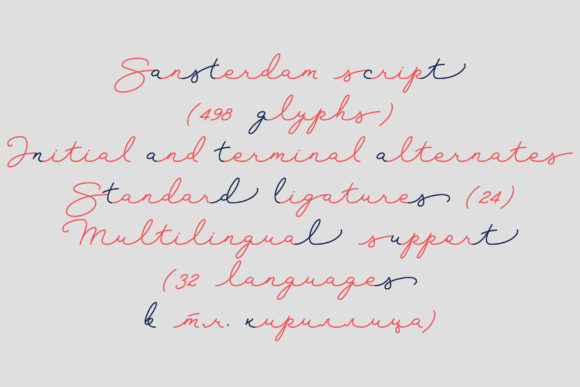 Sansterdam script
(498 glyphs)
Initial and terminal alternates
Standard ligatures (24)
Multilingual support
(32 languages
в т.ч. кириллица)